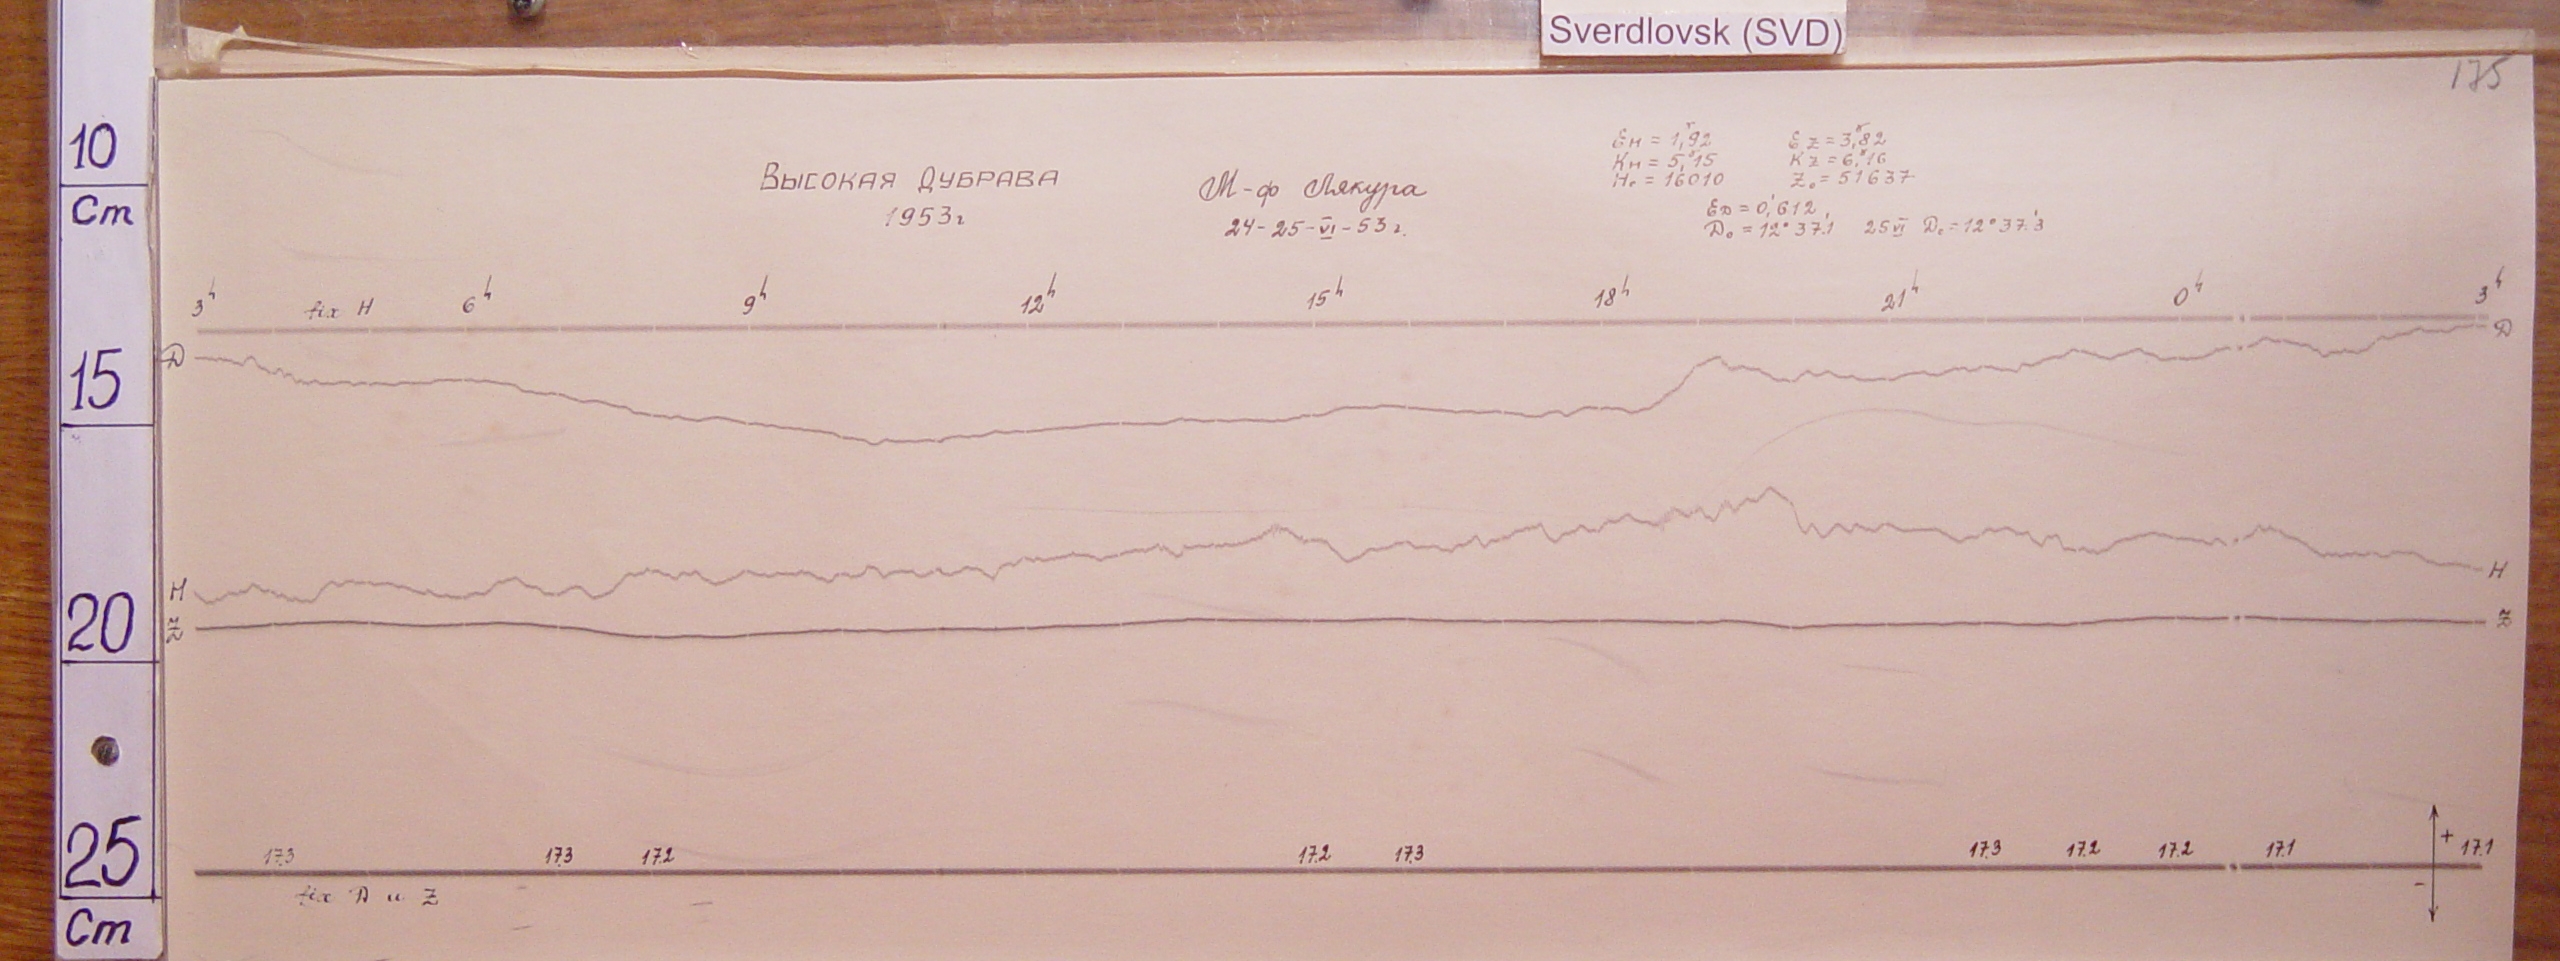 Sverdlovsk (SVD)
175
10
Cm
15
20
25
Cm
Высокая Дубрава
1953г
М-ф Лякура
24-25-VI-53г.
Eн = 1,ˠ92 Ez = 3,ˠ82
Kн = 5,ˠ15 Kz = 6,ˠ16
H₀ = 16010 Z₀ = 51637
ED = 0,'612
D₀ = 12° 37.'1 25 VI D₀ = 12° 37.'3
3h fix H 6h 9h 12h 15h 18h 21h 0h 3h
D D
H H
Z Z
17.3 17.3 17.2 17.2 17.3 17.3 17.2 17.2 17.1 + 17.1
-
fix D и Z